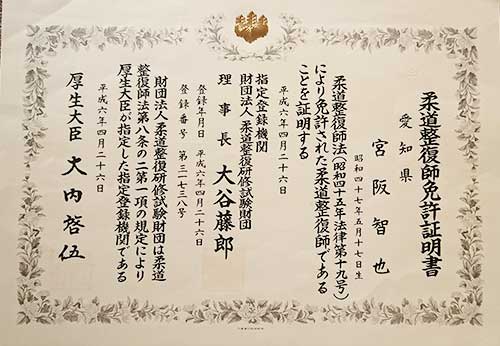 柔道整復師免許証明書
愛知県
宮阪智也
昭和四十七年五月十七日生
柔道整復師法(昭和四十五年法律第十九号)
により免許された柔道整復師である
ことを証明する
平成六年四月二十六日
指定登録機関
財団法人柔道整復研修試験財団
理事長 大谷藤郎
登録年月日 平成六年四月二十六日
登録番号 第三一七三八号
財団法人柔道整復研修試験財団は柔道
整復師法第八条の二第一項の規定により
厚生大臣が指定した指定登録機関である
平成六年四月二十六日
厚生大臣 大内啓伍